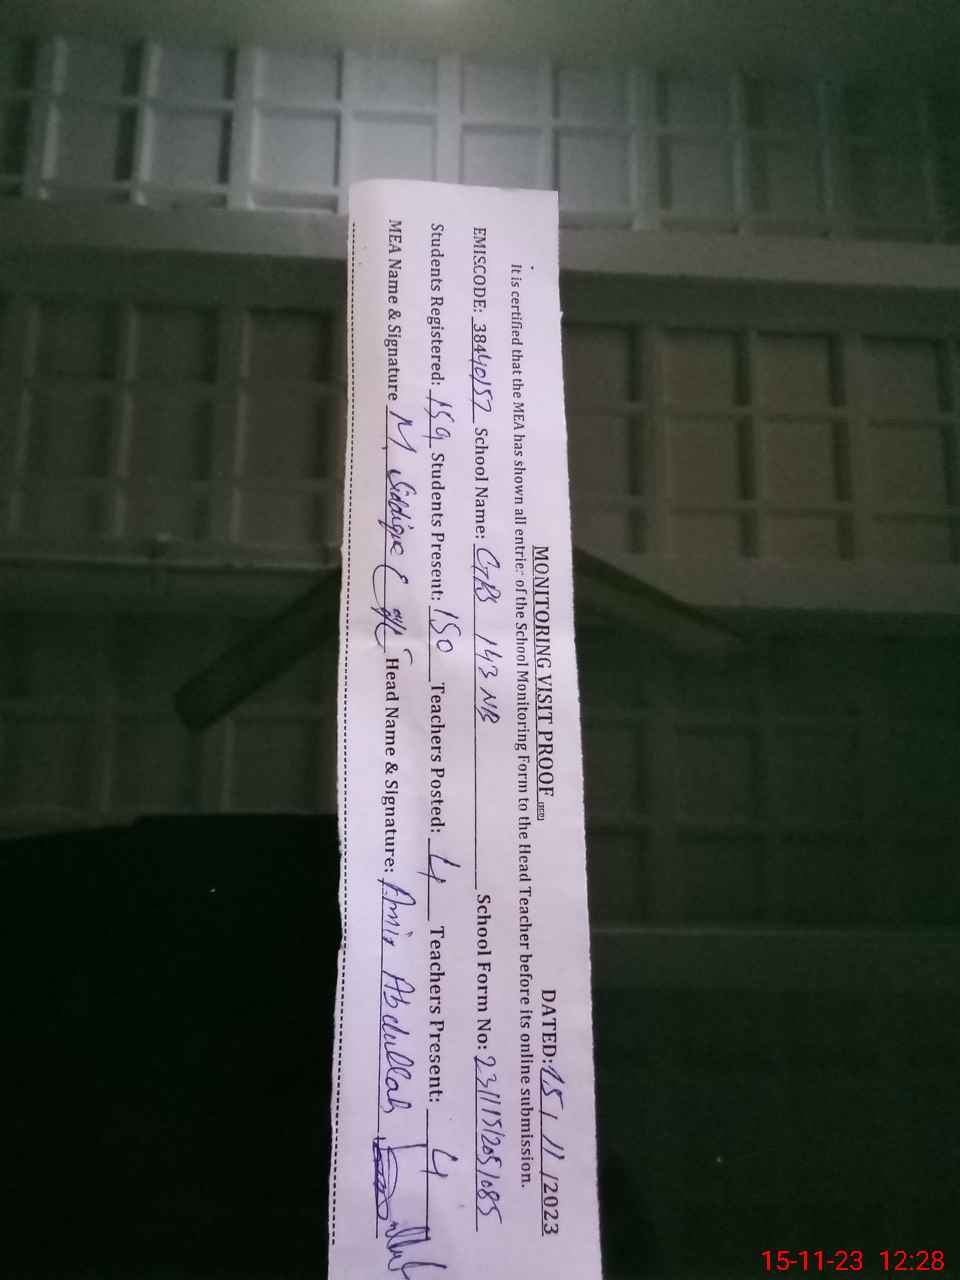 MONITORING VISIT PROOF DATED: 15 / 11 /2023
It is certified that the MEA has shown all entries of the School Monitoring Form to the Head Teacher before its online submission.
EMISCODE: 38440157 School Name: GPS 143 NB School Form No: 23111512051085
Students Registered: 159 Students Present: 150 Teachers Posted: 4 Teachers Present: 4
MEA Name & Signature M. Siddique Head Name & Signature: Amir Abdullah
15-11-23 12:28